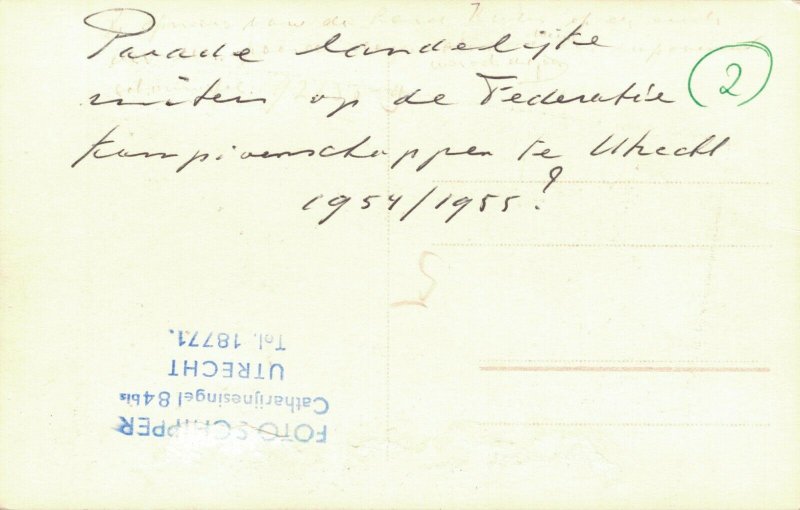 Parade landelijke
ruiters op de Federatie
Kampioenschappen te Utrecht
1954/1955?
2
FOTO SCHIPPER
Catharijnesingel 84bis
UTRECHT
Tel. 18771.